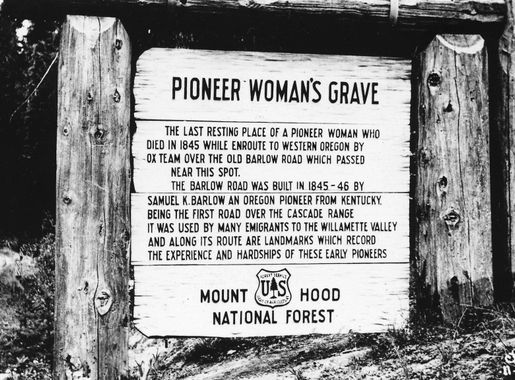 PIONEER WOMAN'S GRAVE
THE LAST RESTING PLACE OF A PIONEER WOMAN WHO
DIED IN 1845 WHILE ENROUTE TO WESTERN OREGON BY
OX TEAM OVER THE OLD BARLOW ROAD WHICH PASSED
NEAR THIS SPOT.
THE BARLOW ROAD WAS BUILT IN 1845-46 BY
SAMUEL K. BARLOW AN OREGON PIONEER FROM KENTUCKY.
BEING THE FIRST ROAD OVER THE CASCADE RANGE
IT WAS USED BY MANY EMIGRANTS TO THE WILLAMETTE VALLEY
AND ALONG ITS ROUTE ARE LANDMARKS WHICH RECORD
THE EXPERIENCE AND HARDSHIPS OF THESE EARLY PIONEERS
FOREST SERVICE
U S
DEPARTMENT OF AGRICULTURE
MOUNT HOOD
NATIONAL FOREST